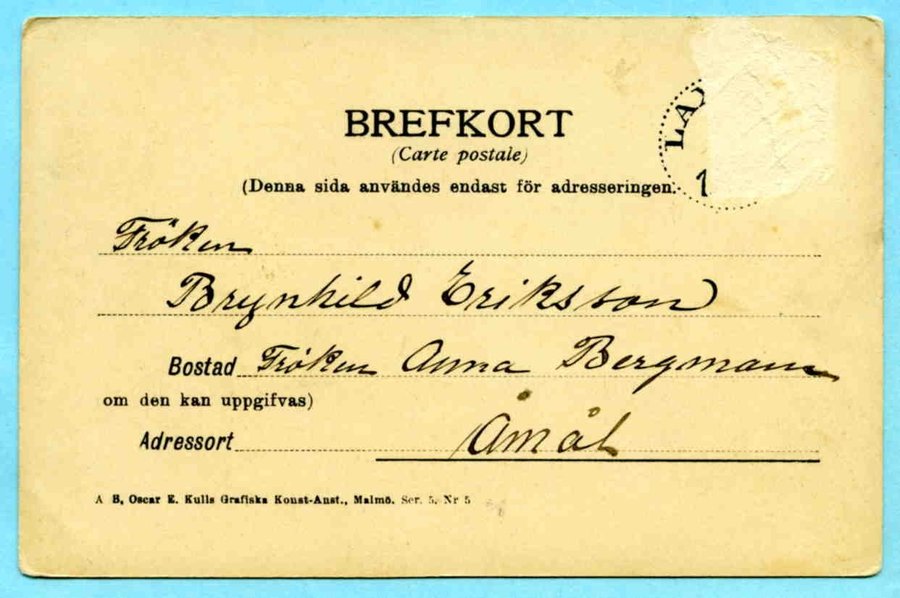 BREFKORT
(Carte postale)
(Denna sida användes endast för adresseringen.
LAX
1
Fröken
Brynhild Eriksson
Bostad Fröken Anna Bergman
om den kan uppgifvas)
Adressort Åmål
A B, Oscar E. Kulls Grafiska Konst-Anst., Malmö. Ser. 5. Nr 5